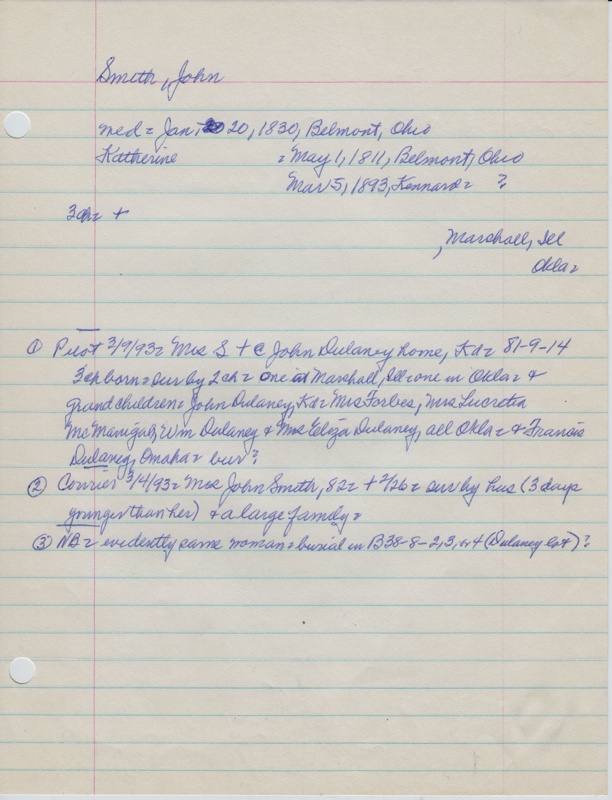 Smith, John
med = Jan, 20 20, 1830, Belmont, Ohio
Katherine = May 1, 1811, Belmont, Ohio
Mar 5, 1893, Kennard = ?
3ch = +
, Marshall, Ill
Okla =
① Pilot 3/9/93 = Mrs S + @ John Dulaney home, Kd = 81-9-14
3 ch born = sur by 2 ch = one at Marshall, Ill = one in Okla = &
grandchildren = John Dulaney, Kd = Mrs Forbes, Mrs Lucretia
McManigal, Wm Dulaney & Mrs Eliza Dulaney, all Okla = & Francis
Dulaney, Omaha = bur?
② Courier 3/4/93 = Mrs John Smith, 82 = + 2/26 = sur by hus (3 days
younger than her) & a large family =
③ NB = evidently same woman = burial in B38-8-2, 3, or 4 (Dulaney lot)?